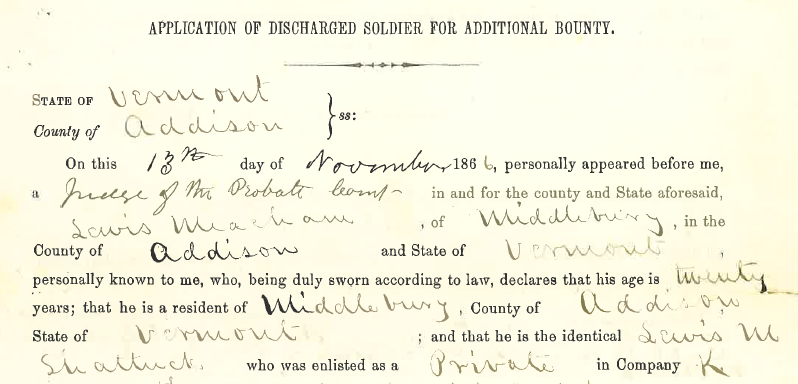 APPLICATION OF DISCHARGED SOLDIER FOR ADDITIONAL BOUNTY.
STATE OF Vermont
County of Addison } ss:
On this 13th day of November 1866, personally appeared before me,
a Judge of the Probate Court in and for the county and State aforesaid,
Lewis Meacham, of Middlebury, in the
County of Addison and State of Vermont,
personally known to me, who, being duly sworn according to law, declares that his age is twenty
years; that he is a resident of Middlebury, County of Addison
State of Vermont; and that he is the identical Lewis M
Shattuck. who was enlisted as a Private in Company K